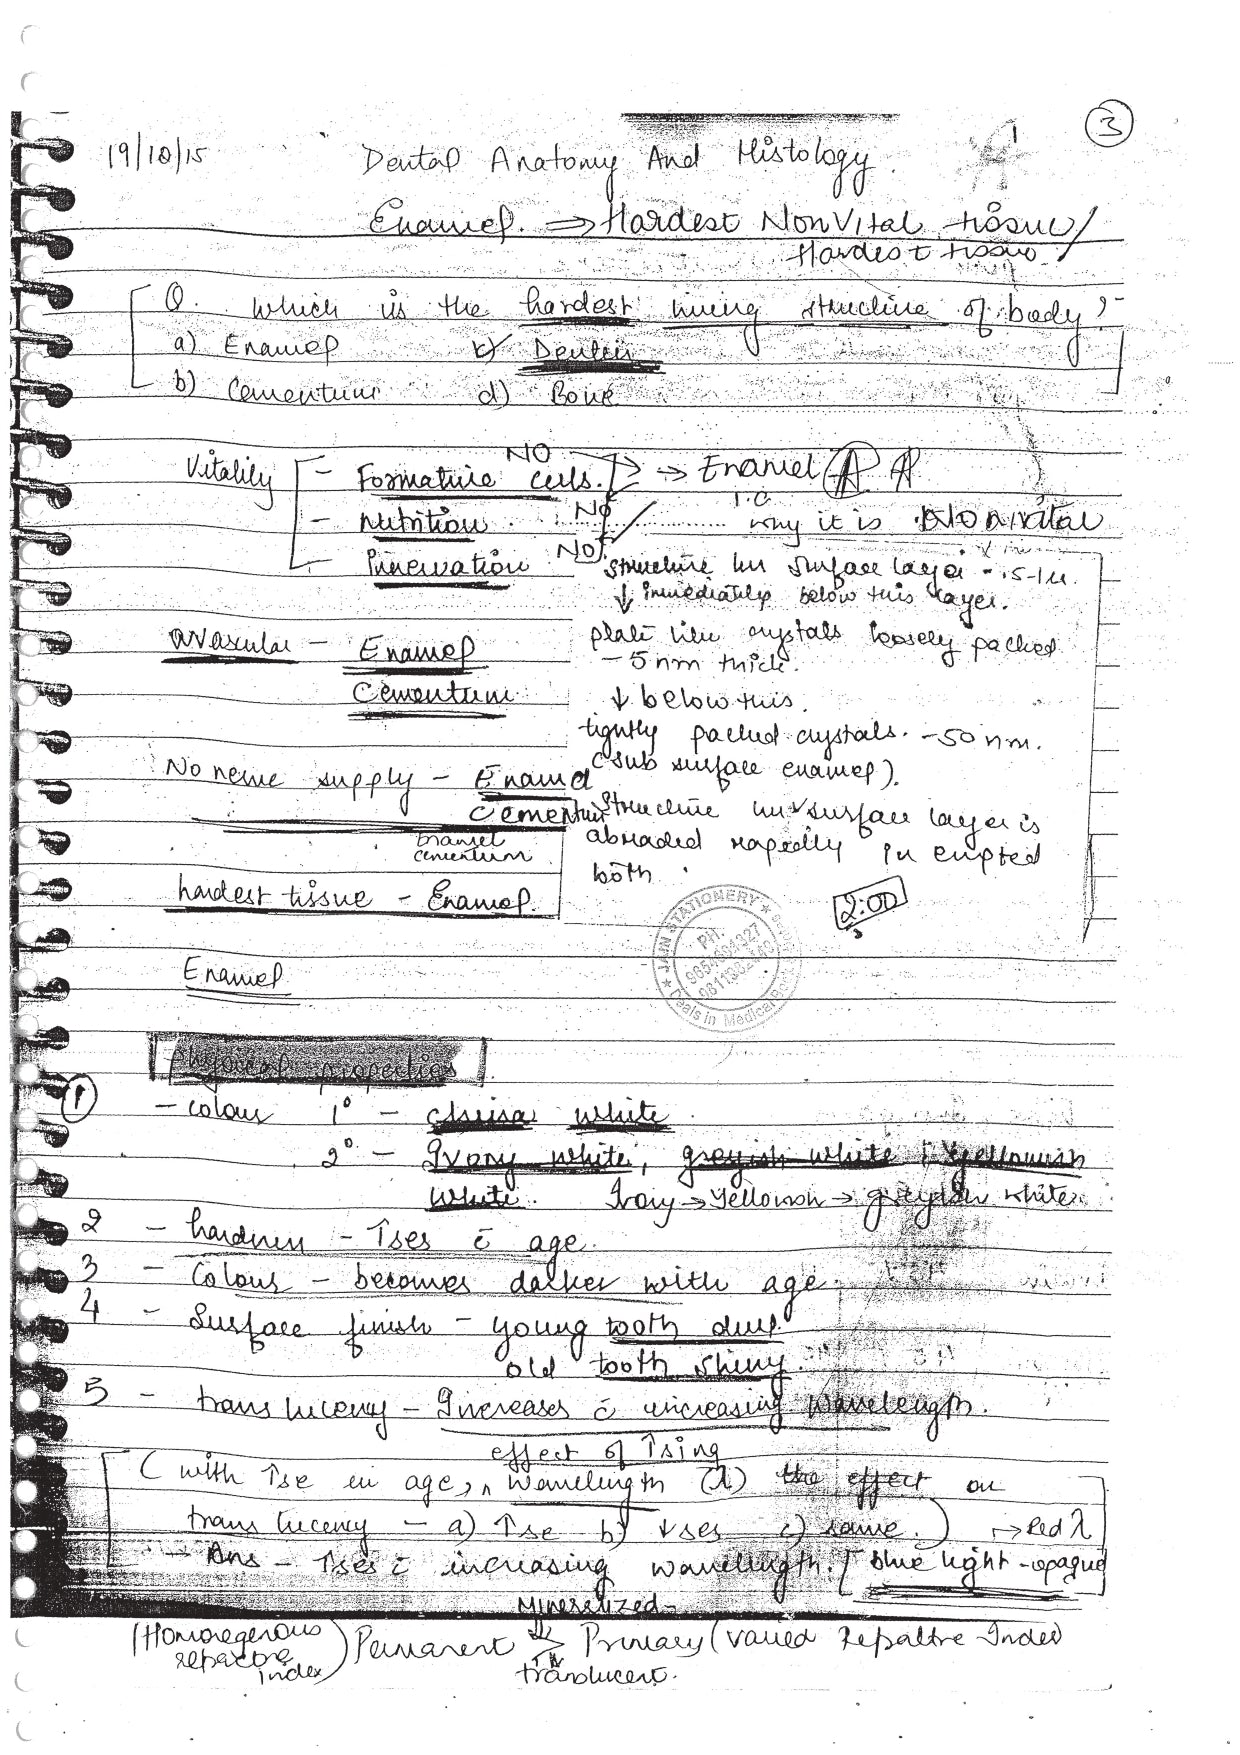 3
19/10/15 Dental Anatomy And Histology.
Enamel. ⇒ Hardest NonVital tissue/
Hardest tissue.
Q. Which is the hardest living structure of body?
a) Enamel c) Dentin
b) Cementum d) Bone
Vitality
- Formative cells. NO → Enamel
- Nutrition NO i.e why it is Nonvital
- Innervation NO
structure less surface layer - .5-1u.
↓ immediately below this layer.
plate like crystals loosely packed
- 5 nm thick.
↓ below this.
tightly packed crystals. - 50 nm.
(sub surface enamel).
structure less surface layer is
abraded rapidly in erupted
both.
2:00
avascular - Enamel
Cementum
No nerve supply - Enamel
Cementum
Enamel
cementum
hardest tissue - Enamel.
JAIN STATIONERY
PH.
Deals in Medical
Enamel
physical properties
1 - colour 1° - china white
2° - Ivory white, greyish white, yellowish
white. Ivory → Yellowish → greyish white
2 - hardness - ↑ses c̄ age.
3 - Colour - becomes darker with age.
4 - Surface finish - young tooth dull
old tooth shiny.
5 - translucency - Increases c̄ increasing wavelength.
effect of ↑sing
(with ↑se in age, ∧ wavelength (λ) the effect on
translucency - a) ↑se b) ↓ses c) same.) → Red λ
→ Ans - ↑ses c̄ increasing wavelength. [blue light - opaque
Mineralized
(Homoregenous refractive index) Permanent > Primary (varied Refractive Index)
translucent.